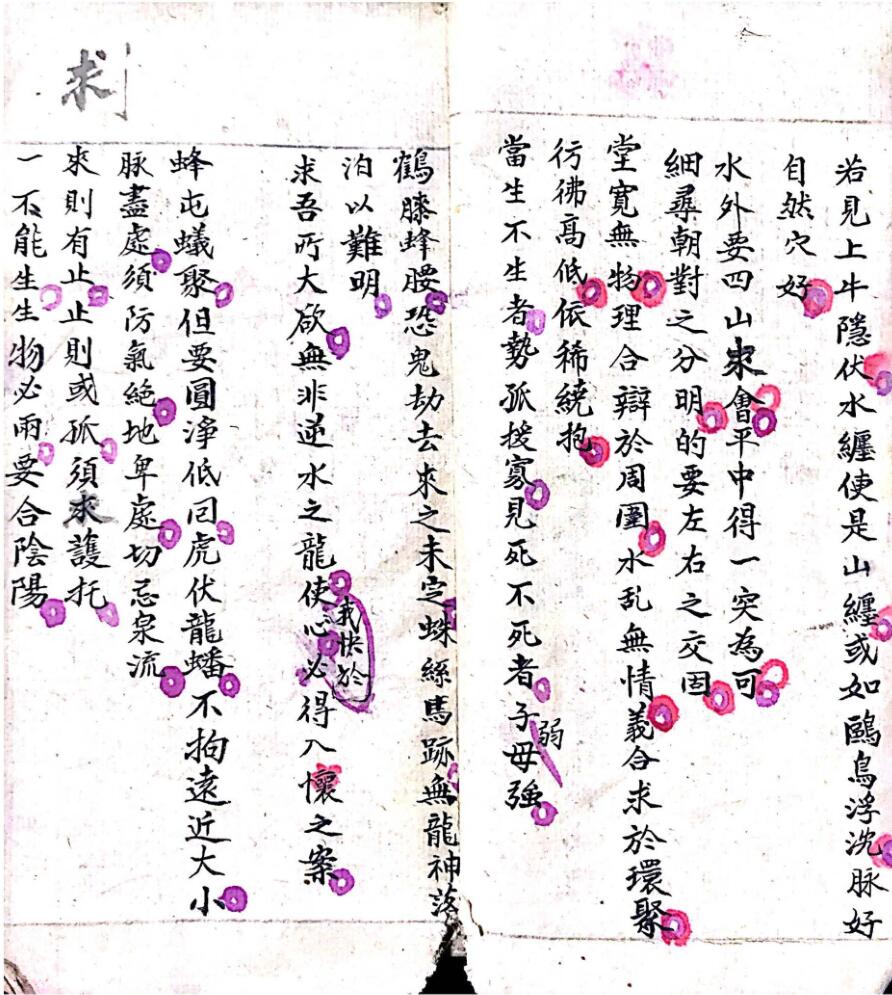 若見上牛隱伏水纏便是山纏或如鷗鳥浮沈脉好
自然穴好
水外要四山來會平中得一突為可
細尋朝對之分明的要左右之交固
堂寬無物理合辯於周圍水乱無情義合求於環聚
彷彿高低依稀繞抱
當生不生者勢孤援寡見死不死者子母強
弱
鶴膝蜂腰恐鬼劫去來之未定蛛絲馬跡無龍神落
泊以難明
求吾所大欲無非逆水之龍使心必得入懷之案
我快於
蜂屯蟻聚但要圓淨低回虎伏龍蟠不拘遠近大小
脉盡處須防氣絶地卑處切忌泉流
來則有止止則或孤須求護托
一不能生生物必兩要合陰陽
求